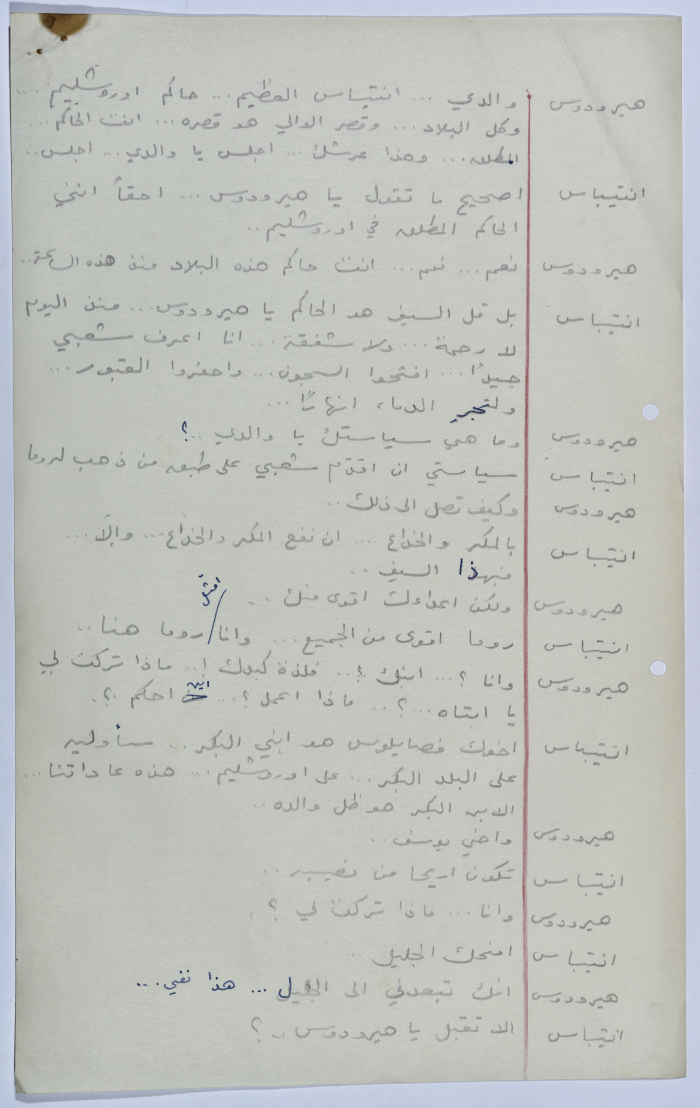 هيرودوس والدي ... انتيباس العظيم ... حاكم اورشليم ...
وكل البلاد ... وقصر الوالي هو قصره ... انت الحاكم ...
المطلق ... وهذا عرشك ... اجلس يا والدي ... اجلس ..
انتيباس اصحيح ما تقول يا هيرودوس ... احقاً انني
الحاكم المطلق في اورشليم ..
هيرودوس نعم ... نعم ... انت حاكم هذه البلاد منذ هذه الساعة ..
انتيباس بل قل السيف هو الحاكم يا هيرودوس ... منذ اليوم
لا رحمة ... ولا شفقة ... انا اعرف شعبي
جيدًا ... افتحوا السجون ... واحفروا القبور ...
ولتجرِ الدماء انهارًا ...
هيرودوس وما هي سياستك يا والدي ..؟
انتيباس سياستي ان اقدّم شعبي على طبق من ذهب لروما
هيرودوس وكيف تصل الى ذلك ..
انتيباس بالمكر والخداع ... ان نفع المكر والخداع ... والّا ...
فبهذا السيف ..
هيرودوس ولكن اعداءك اقوى منك ..
انتيباس روما اقوى من الجميع ... وانا امثّل روما هنا ..
هيرودوس وانا ؟ ... ابنك ؟ .. فلذة كبدك ! .. ماذا تركت لي
يا ابتاه ...؟ .. ماذا اعمل ؟ .. اين احكم ؟.
انتيباس اخوك فصايلوس هو ابني البكر .. سأوليه
على البلد البكر ... على اورشليم ... هذه عاداتنا ...
الابن البكر هو ظل والده ..
هيرودوس واخي يوسف ..
انتيباس تكون اريحا من نصيبه ..
هيرودوس وانا ... ماذا تركت لي ؟
انتيباس امنحك الجليل ...
هيرودوس انك تبعدني الى الجليل ... هذا نفي ...
انتيباس الا تقبل يا هيرودوس .. ؟